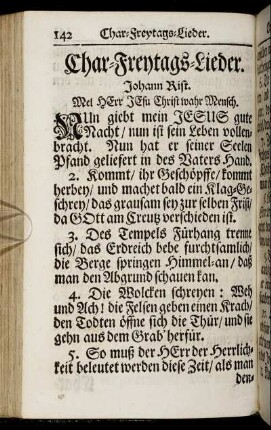 142 Char-Freytags-Lieder.
Char-Freytags-Lieder.
Johann Rist.
Mel HErr JEsu Christ wahr Mensch.
NUn giebt mein JESUS gute
Nacht/ nun ist sein Leben vollen-
bracht. Nun hat er seiner Seelen
Pfand geliefert in des Vaters Hand.
2. Kommt/ ihr Geschöpffe/ kommt
herbey/ und machet bald ein Klag-Ge-
schrey/ das grausam sey zur selben Frist/
da GOtt am Creutz verschieden ist.
3. Des Tempels Fürhang trenne
sich/ das Erdreich bebe furchtsamlich/
die Berge springen Himmel-an/ daß
man den Abgrund schauen kan.
4. Die Wolcken schreyen: Weh
und Ach! die Felsen geben einen Krach/
den Todten öffne sich die Thür/ und sie
gehn aus dem Grab' herfür.
5. So muß der HErr der Herrlich-
keit beleutet werden diese Zeit/ als man
den-